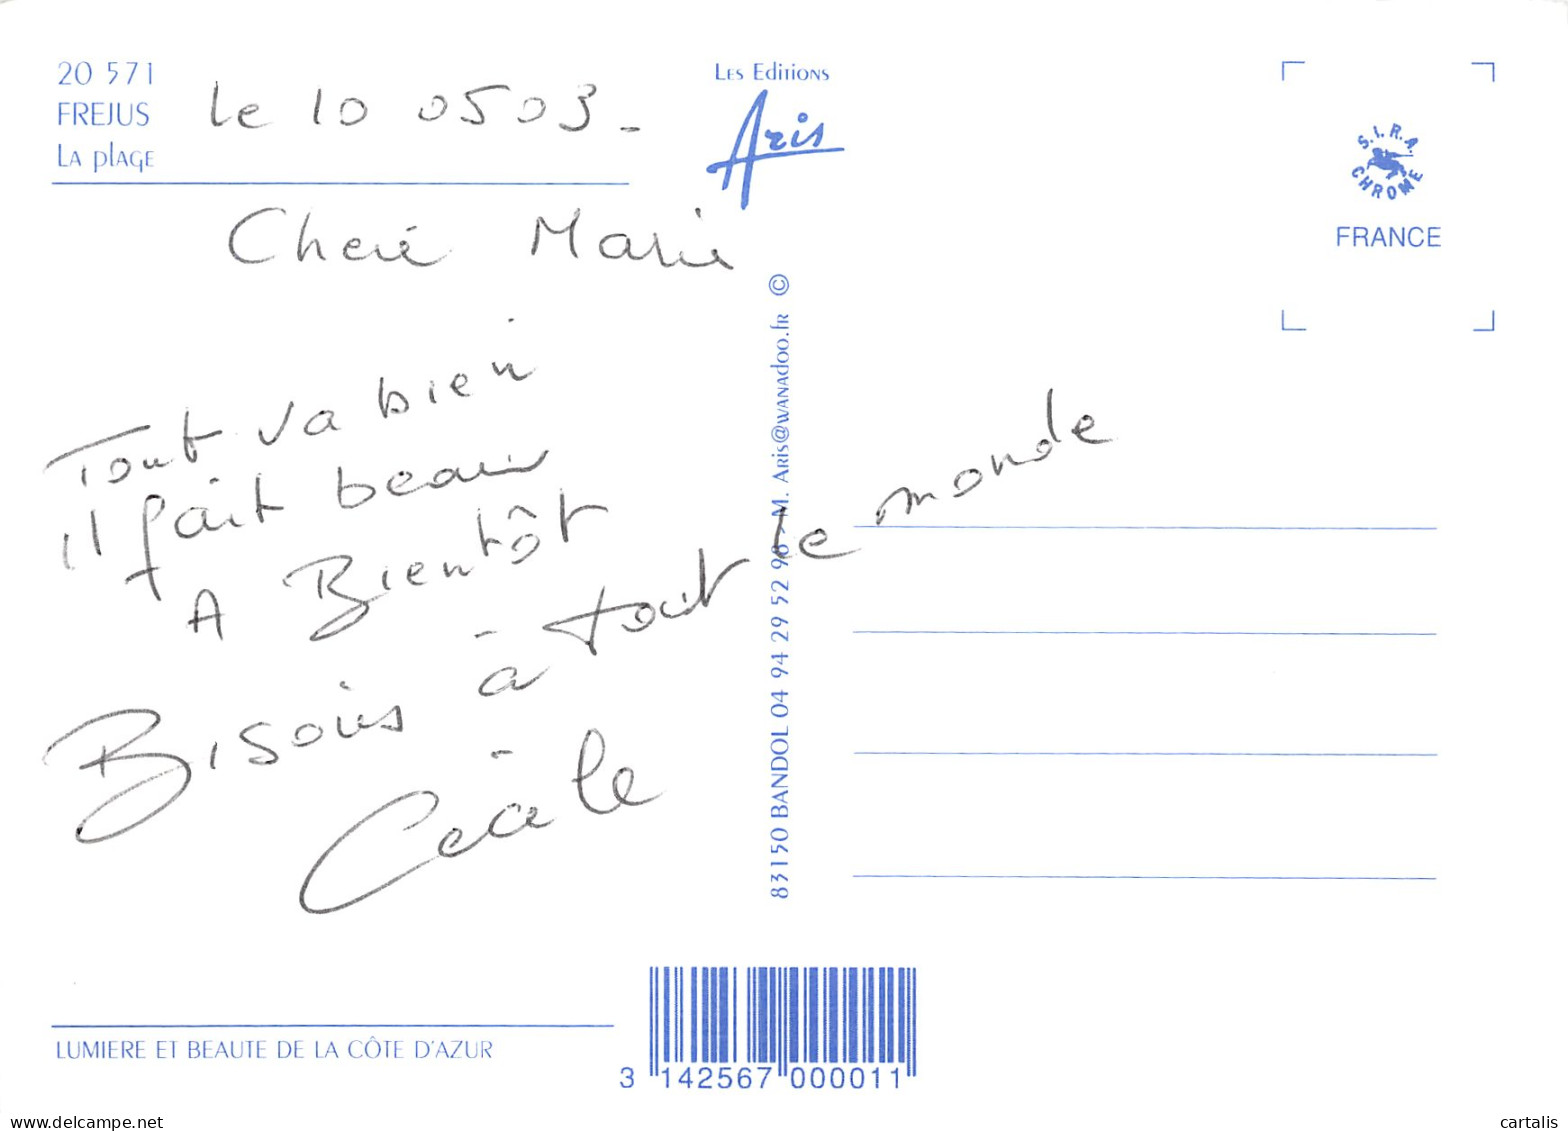 20 571
FREJUS
La plage
le 10 05 03 -
Les Editions
Aris
S.I.R.A.
CHROME
FRANCE
Cherie Marie
Tout va bien
il fait beau
A Bientôt
Bisous à tout le monde
Cécile
83150 BANDOL 04 94 29 52 98 - M. Aris@wanadoo.fr ©
LUMIERE ET BEAUTE DE LA CÔTE D'AZUR
3 142567 000011
cartalis